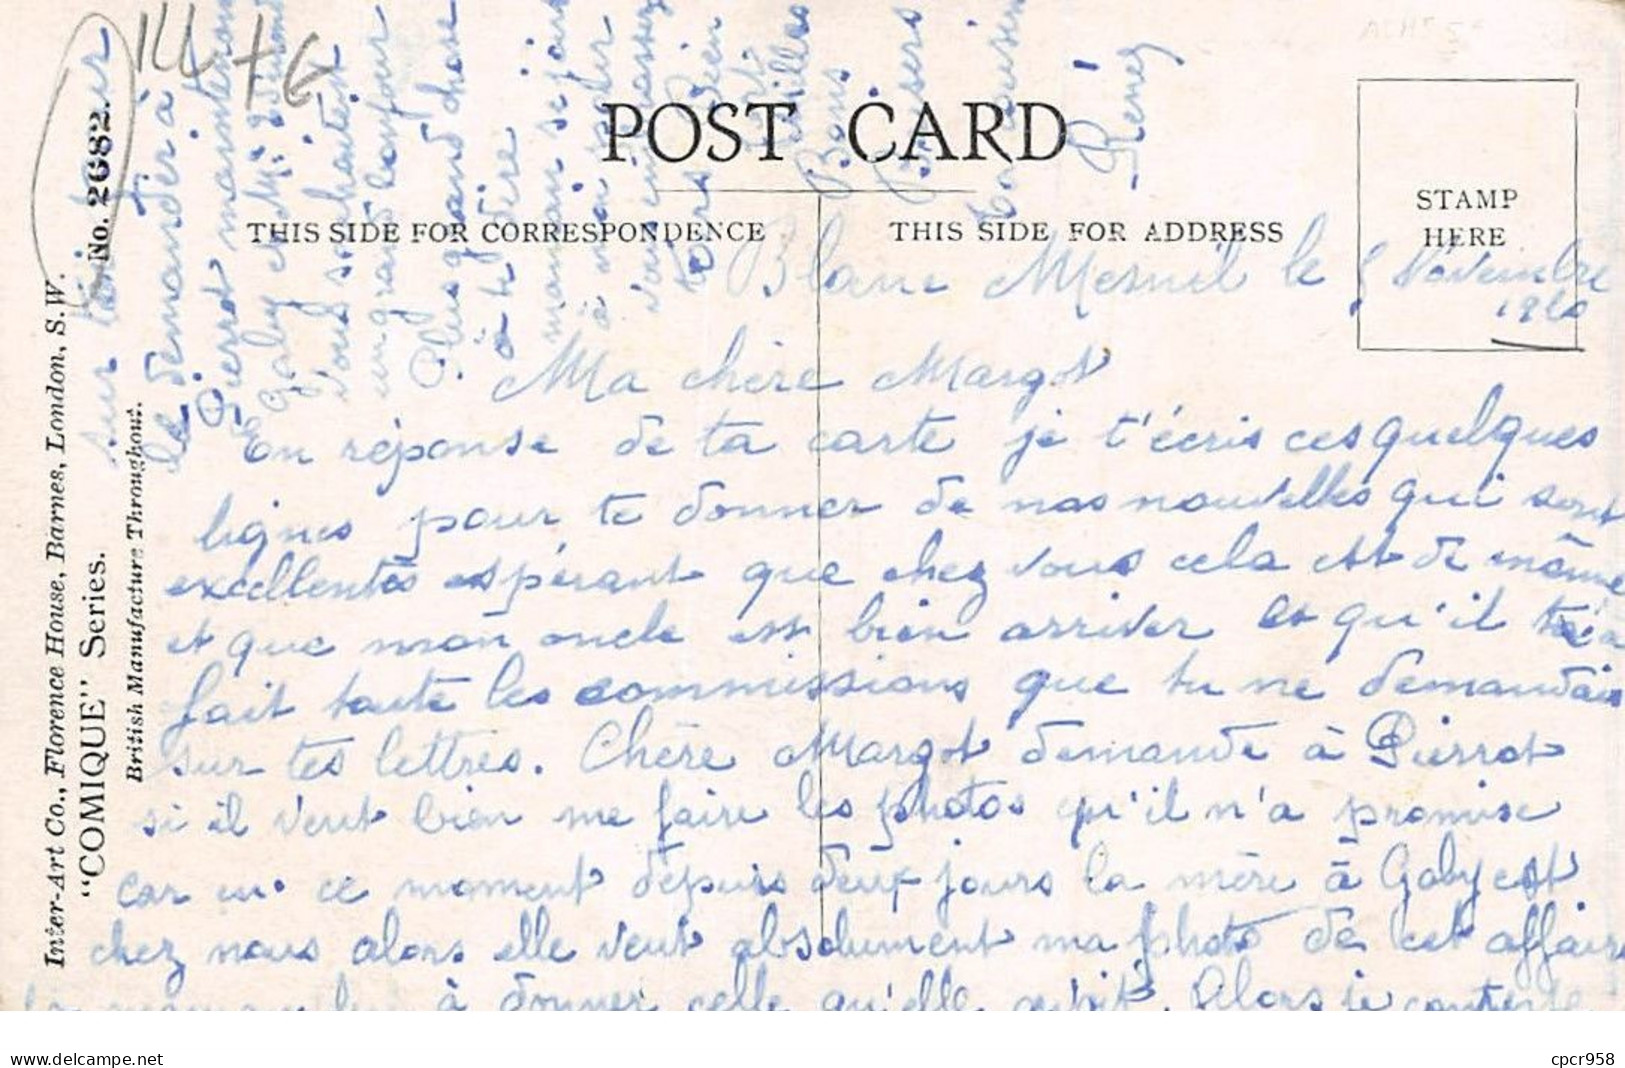 POST CARD
THIS SIDE FOR CORRESPONDENCE
THIS SIDE FOR ADDRESS
STAMP
HERE
Inter-Art Co., Florence House, Barnes, London, S.W.
"COMIQUE" Series.
No. 2682.
British Manufacture Throughout.
Blanc Mesnil le 5 Novembre
Ma chère Margot
En réponse de ta carte je t'écris ces quelques
lignes pour te donner de nos nouvelles qui sont
excellentes espérant que chez vous cela est de même
et que mon oncle est bien arriver et qu'il
fait toute les commissions que tu me demandais
sur tes lettres. Chère Margot demande à Pierrot
si il veut bien me faire les photos qu'il m'a promise
car en ce moment depuis deux jours la mère à Gaby est
chez nous alors elle veut absolument ma photo de cet affaire
à donner celle qu'elle avait. Alors je compte
sur toi pour
le demander à
Pierrot maintenant
Gaby et
vous souhaitent
un grand bonjour
Plus grand chose
à te dire
maman se joint
à moi pour
vous embrasser
tous bien
fort
Bons
Baisers
Ta cousine
Renée
www.delcampe.net
cpcr958